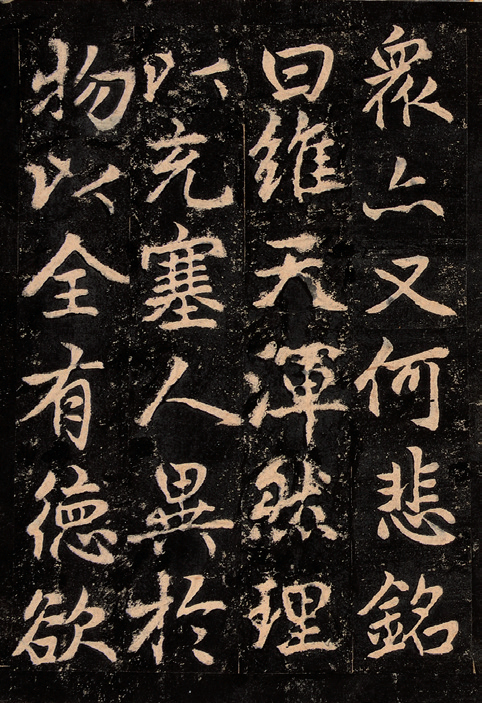 眾亦又何悲銘
曰維天渾然理
以充塞人異於
物以全有德欲